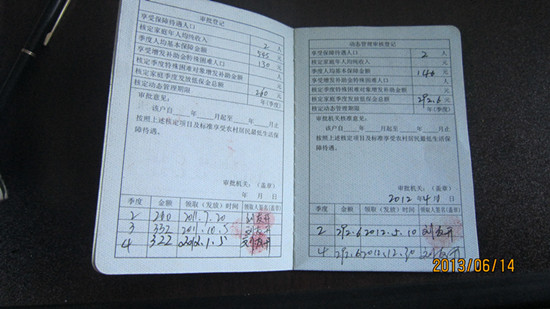 审核登记
享受保障待遇人口 2 人
核定家庭年人均纯收入 545 元
季度人均基本保障金额 130 元
享受增发补助金特殊困难人口 人
核定季度特殊困难对象增发补助金额 元
核定家庭季度发放低保金总额 260 元
核定动态管理期限 年(季度)
审批意见:
该户自 年 月起至 年 月止
按照上述核定项目及标准享受农村居民最低生活保
障待遇。
审批机关: (盖章)
年 月 日
季度 金额 领取(发放)时间 领振人签名(盖章)
2 290 2011.7.20
3 332 2011.10.5
4 322 2012.1.5
动态管理审核登记
享受保障待遇人口 2 人
核定家庭年人均纯收入 元
季度人均基本保障金额 146 元
享受增发补助金特殊困难人口 人
核定季度特殊困难对象增发补助金额 元
核定家庭季度发放低保金总额 292.6 元
核定动态管理期限 年(季度)
审批机关核准意见:
该户自 年 月起至 年 月止
按照上述核定项目及标准享受农村居民最低生活保
障待遇。
审批机关: (盖章)
2012 年 4 月 日
季度 金额 领取(发放)时间 领振人签名(盖章)
2 292.6 2012.5.10
4 292.6 2012.12.30
2013/06/14